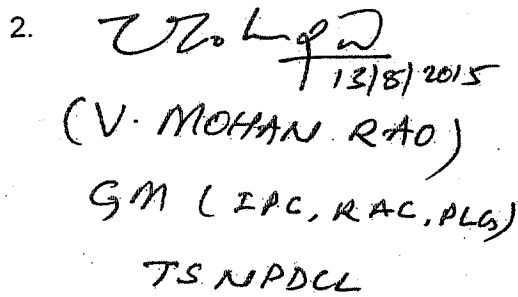 2.
13/8/2015
(V. MOHAN RAO)
GM (IPC, RAC, PLG)
TSNPDCL